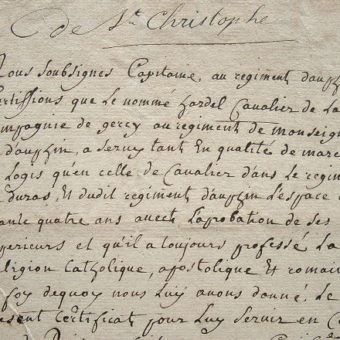 de St Christophe
Nous soubsignes Capitaine, au regiment dauph
ertiffions que le nommé hardel Cavalier de La
ompagnie de gercy au regiment de monseign
dauphin, a servy tant En qualités de marc
Logis qu'en celle de Cavalier dans Le regim
duras, Et dudit regiment dauphin L'espace
ante quatre ans avecti Laprobation de ses
perieurs et qu'il a toujours professé La
eligion Catholique, apostolique Et romain
foy dequoy nous Luy avons donné, Le
esent Certificat pour Luy Servir en Ca